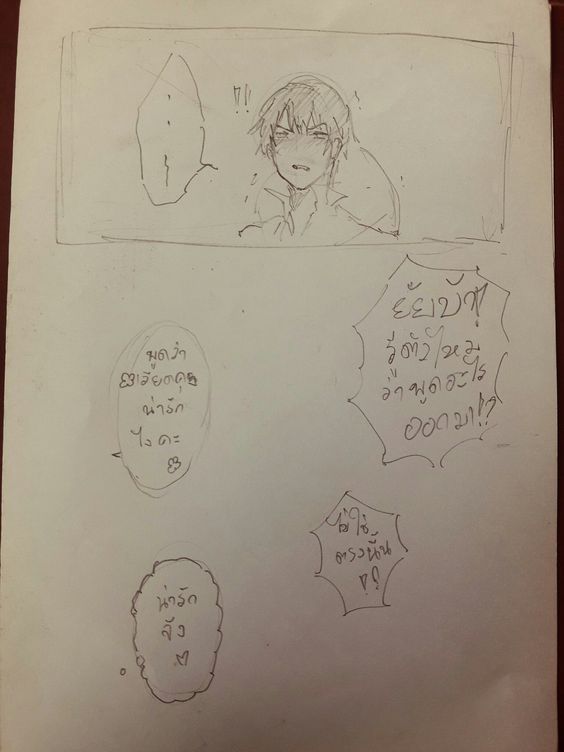 !!
ยัยบ้า!
รู้ตัวไหม
ว่าพูดอะไร
ออกมา!!?
พูดว่า
น่ารัก
ไงคะ
ไม่ใช่
ตรงนั้น
!?
น่ารัก
จัง
♡